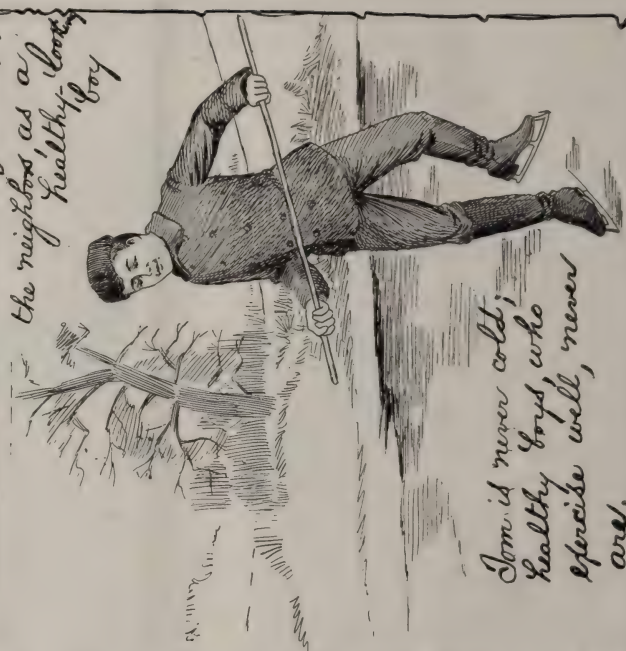 the neighbors as a
healthy-looking
boy
Tom is never cold;
healthy boys, who
exercise well, never
are.